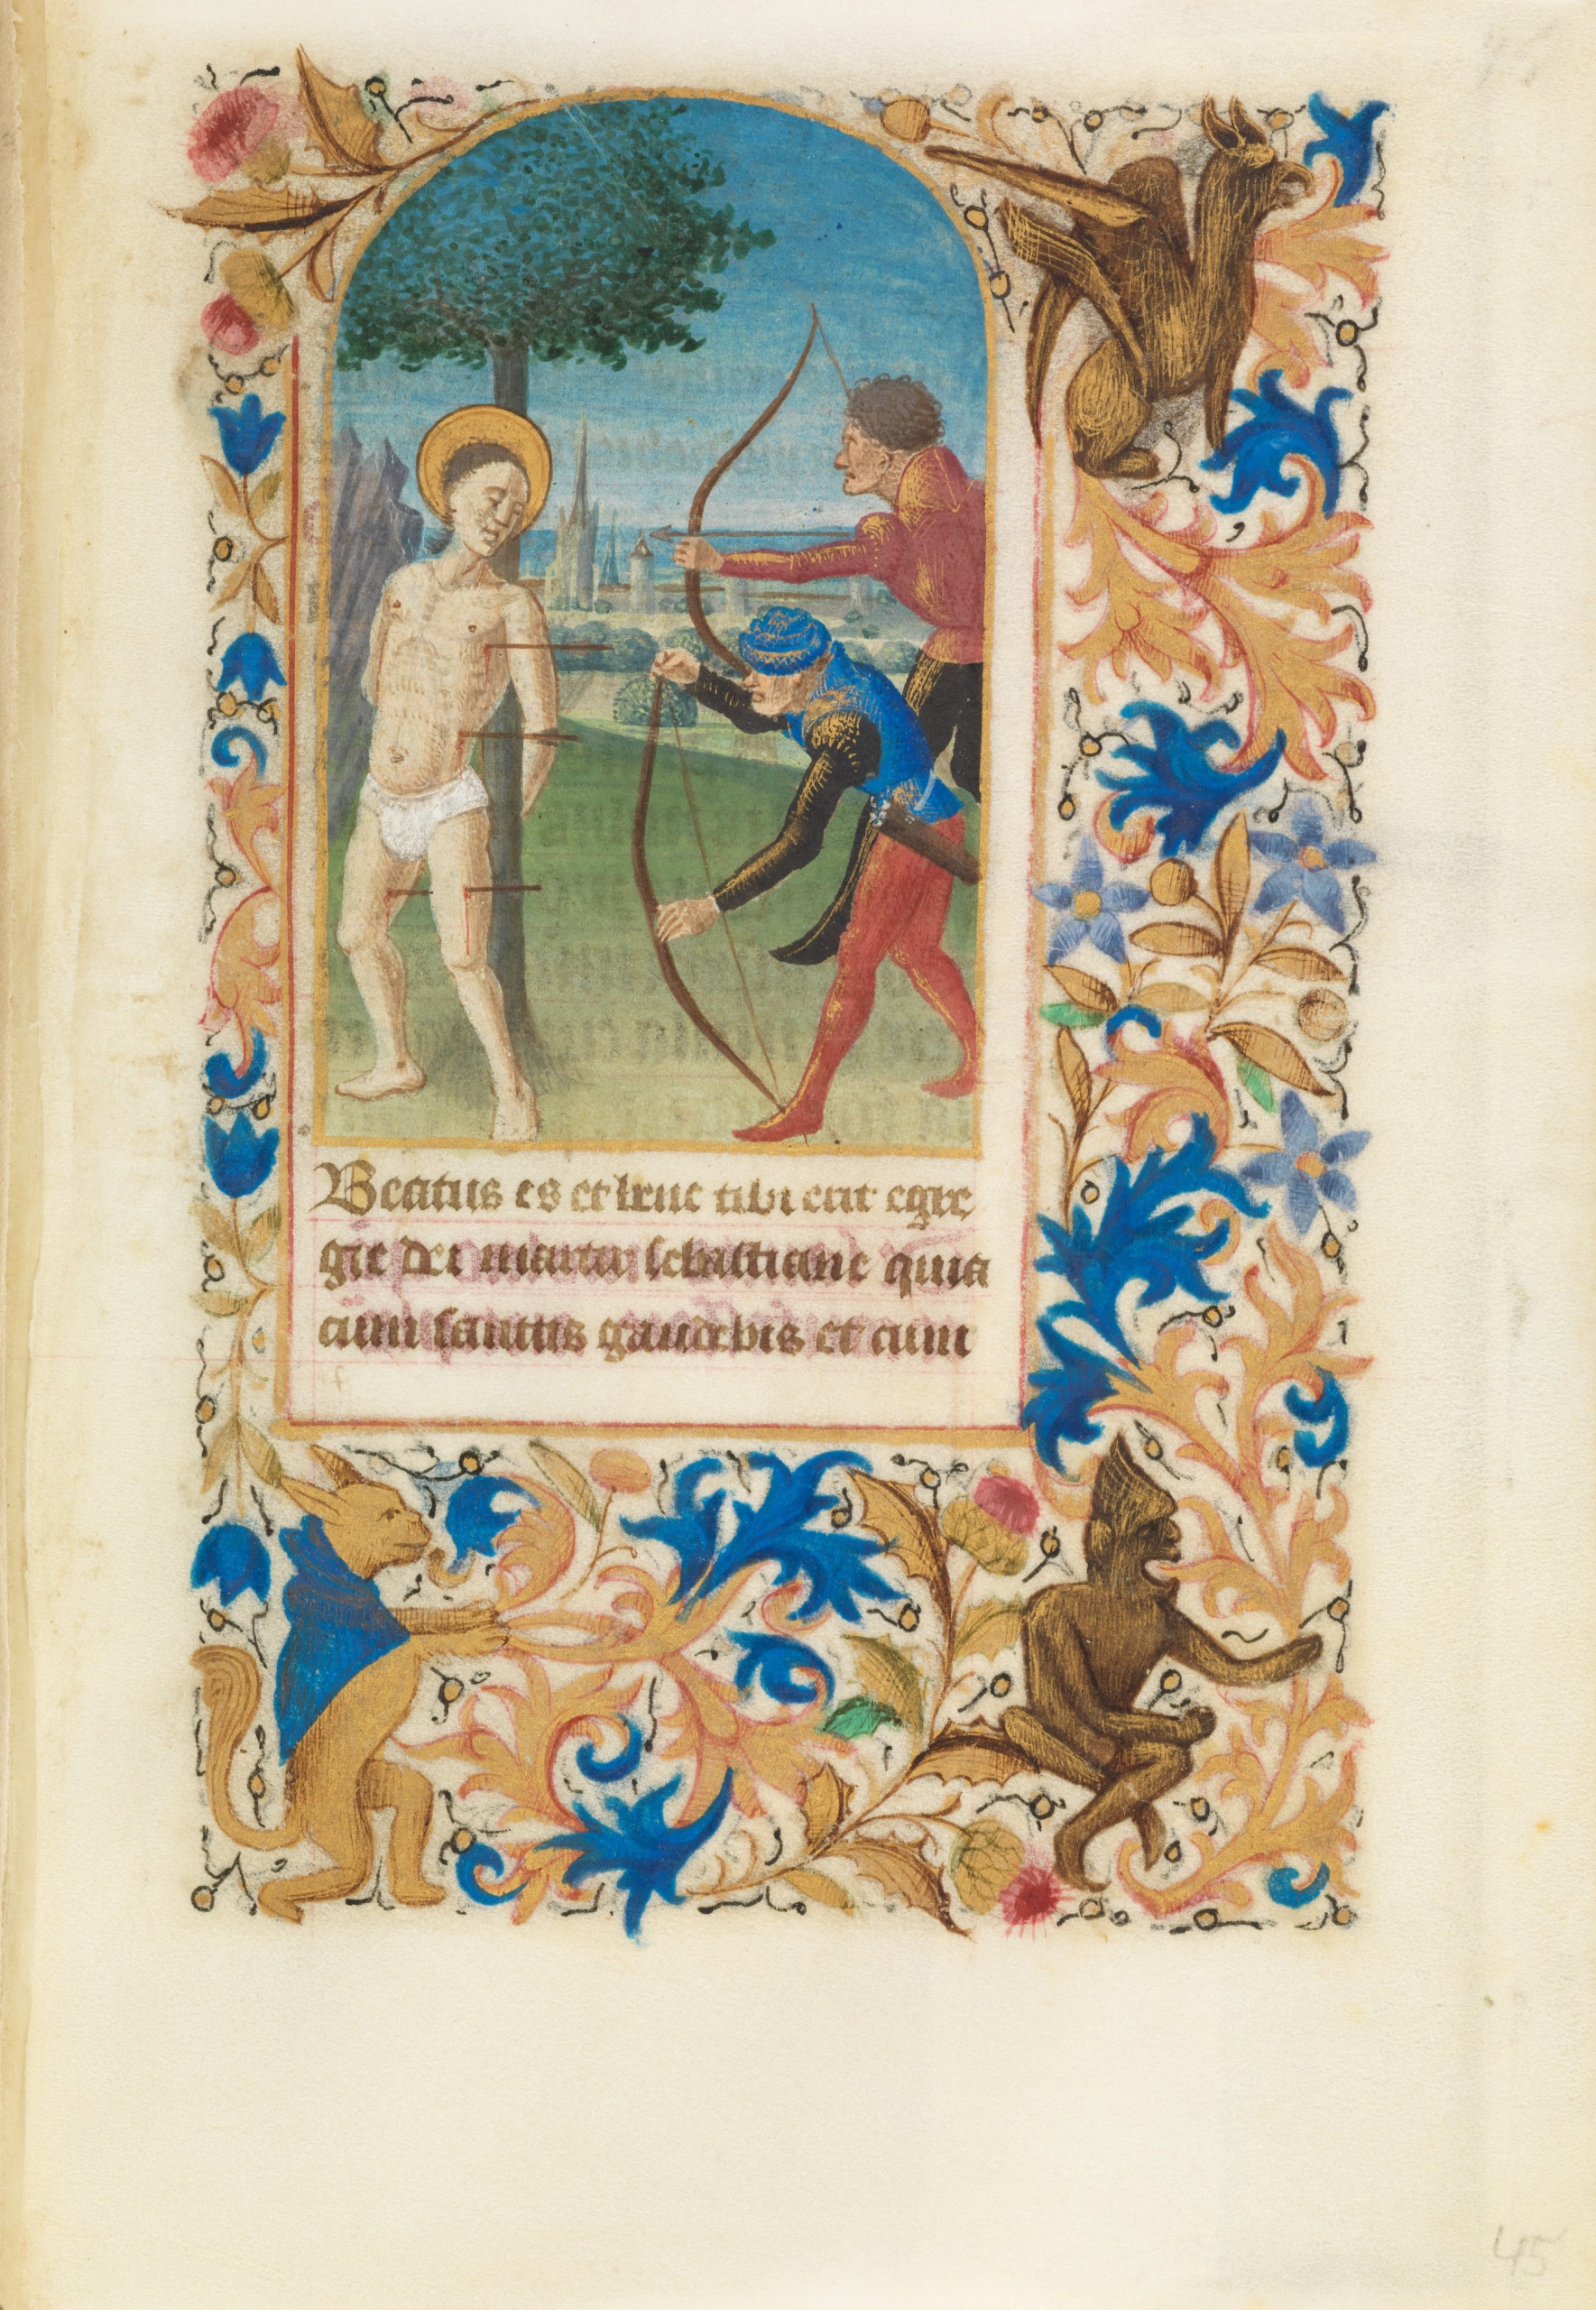 Beatus es et bene tibi erit egre
gie dei martir sebastiane quia
cum sanctis gaudebis et cum
45